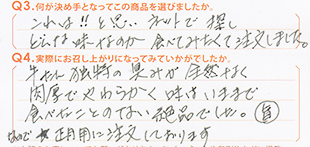 Q3.何が決め手となってこの商品を選びましたか。
これは!!と思い ネットで探し
どんな味なのか 食べてみたくて注文しました。
Q4.実際にお召し上がりになってみていかがでしたか。
牛タン独特の臭みが全然なく
肉厚でやわらかく 味もいままで
食べたことのない絶品でした。旨
なので お正月用に注文しております